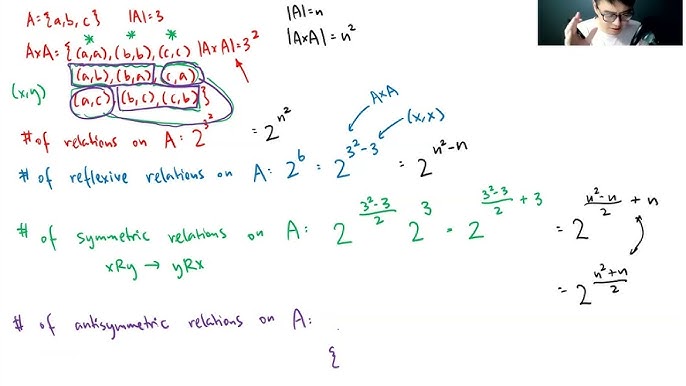 A={a,b,c} |A|=3 |A|=n
* * *
A×A={(a,a),(b,b),(c,c) |A×A|=3² |A×A|=n²
(a,b),(b,a),(c,a)
(x,y) (a,c),(b,c),(c,b)}
A×A
# of relations on A: 2^3² = 2^n² (x,x)
# of reflexive relations on A: 2^6 = 2^(3²-3) = 2^(n²-n)
# of symmetric relations on A: 2^((3²-3)/2) 2^3 = 2^((3²-3)/2 + 3) = 2^((n²-n)/2 + n)
xRy → yRx
= 2^((n²+n)/2)
# of antisymmetric relations on A:
{